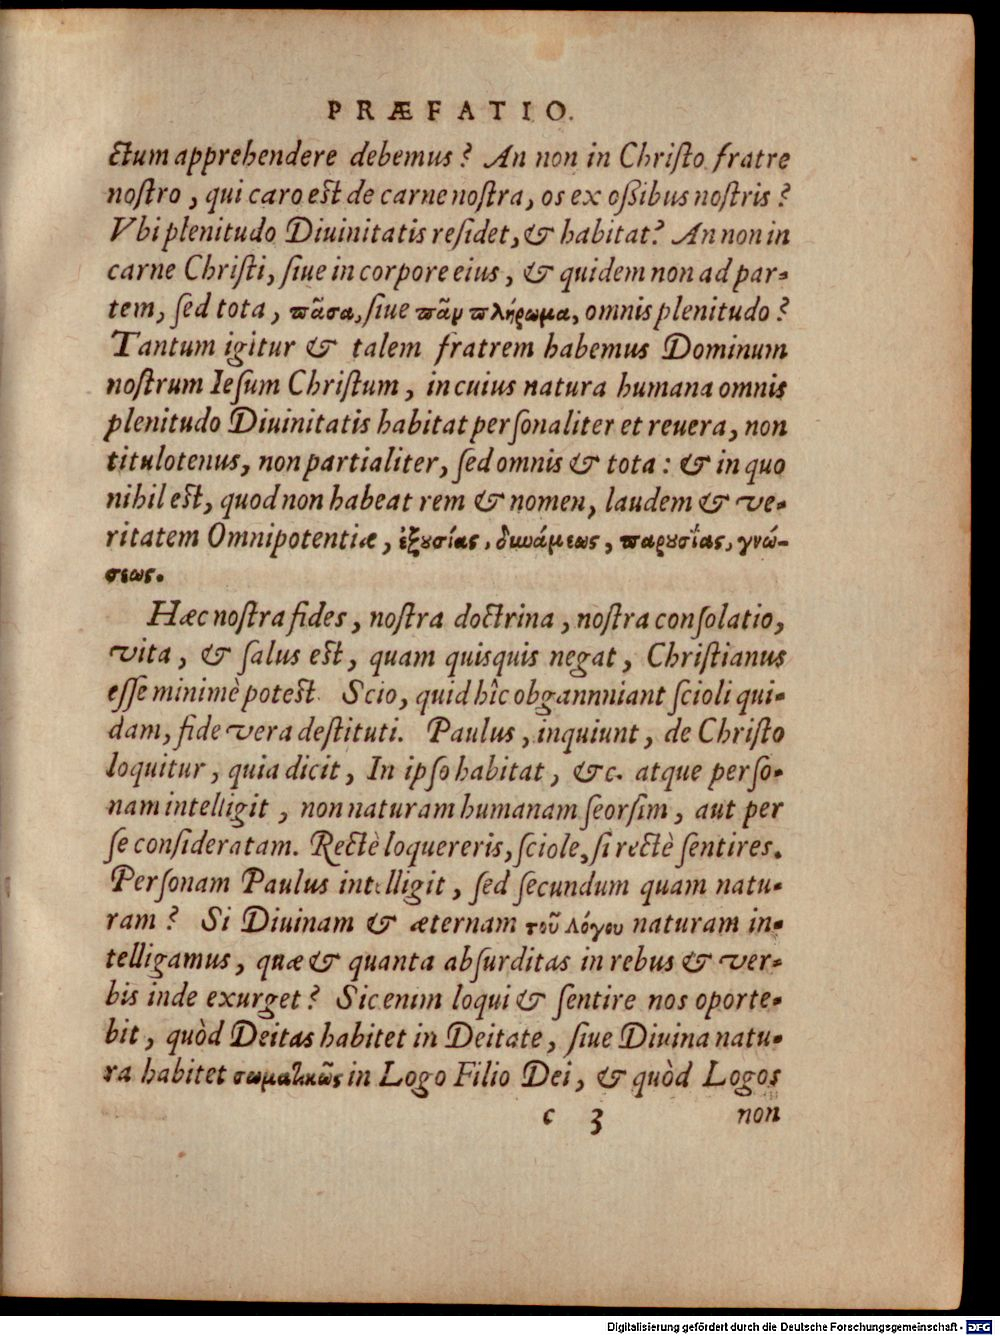 PRÆFATIO.
ctum apprehendere debemus? An non in Chriſto fratre
noſtro, qui caro eſt de carne noſtra, os ex oßibus noſtris?
Vbi plenitudo Diuinitatis reſidet, & habitat? An non in
carne Chriſti, ſiue in corpore eius, & quidem non ad par-
tem, ſed tota, πᾶσα, ſiue πᾶν πλήρωμα, omnis plenitudo?
Tantum igitur & talem fratrem habemus Dominum
noſtrum Ieſum Chriſtum, in cuius natura humana omnis
plenitudo Diuinitatis habitat perſonaliter et reuera, non
titulotenus, non partialiter, ſed omnis & tota: & in quo
nihil eſt, quod non habeat rem & nomen, laudem & ve-
ritatem Omnipotentiæ, ἐξουσίας, δυνάμεως, παρουσίας, γνώ-
σεως.
Hæc noſtra fides, noſtra doctrina, noſtra conſolatio,
vita, & ſalus eſt, quam quisquis negat, Chriſtianus
eſſe minimè poteſt. Scio, quid hîc obgannniant ſcioli qui-
dam, fide vera deſtituti. Paulus, inquiunt, de Chriſto
loquitur, quia dicit, In ipſo habitat, &c. atque perſo-
nam intelligit, non naturam humanam ſeorſim, aut per
ſe conſideratam. Rectè loquereris, ſciole, ſi rectè ſentires.
Perſonam Paulus intelligit, ſed ſecundum quam natu-
ram? Si Diuinam & æternam τοῦ Λόγου naturam in-
telligamus, quæ & quanta abſurditas in rebus & ver-
bis inde exurget? Sic enim loqui & ſentire nos oporte-
bit, quòd Deitas habitet in Deitate, ſiue Diuina natu-
ra habitet σωματικῶς in Logo Filio Dei, & quòd Logos
c 3 non
Digitalisierung gefördert durch die Deutsche Forschungsgemeinschaft - DFG